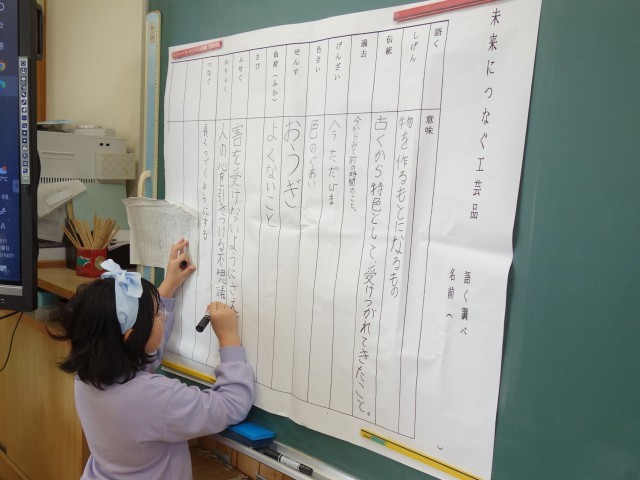 未来につなぐ工芸品
語く調べ
名前（
語く 意味
しげん 物を作るもとになるもの
伝統 古くから特色として、受けつがれてきたこと。
過去 今からみて前の時間のこと。
げんざい 今、ただいま
色合い 色のぐあい
せんす おうぎ
負荷（ふか） よくないこと
さび
ふせぐ 害を受けないようにさえ
みりょく 人の心を引きつける不思議
つなぐ 長くつづくようにする